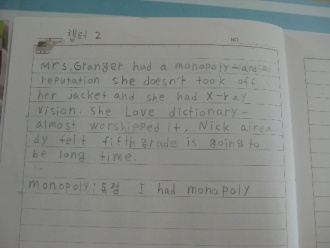 챕터 2
NO.
Mrs. Granger had a monopoly-and a
reputation she doesn't took off
her jacket and she had X-ray
vision. she Love dictionary-
almost worshipped it. Nick alrea
dy felt fifth grade is going to
be long time.
monopoly: 독점 I had monopoly